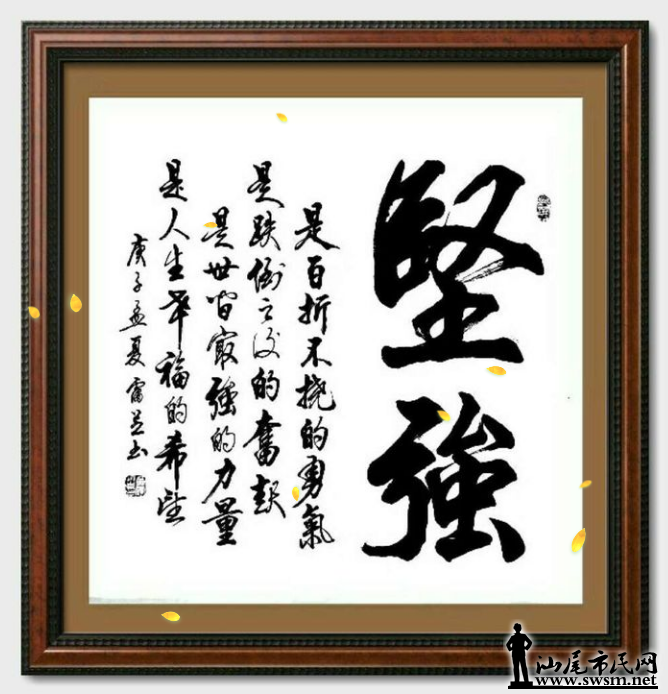 堅強
是百折不撓的勇氣
是跌倒之後的奮起
是世間最強的力量
是人生幸福的希望
庚子孟夏
汕尾市民网
www.swsm.net